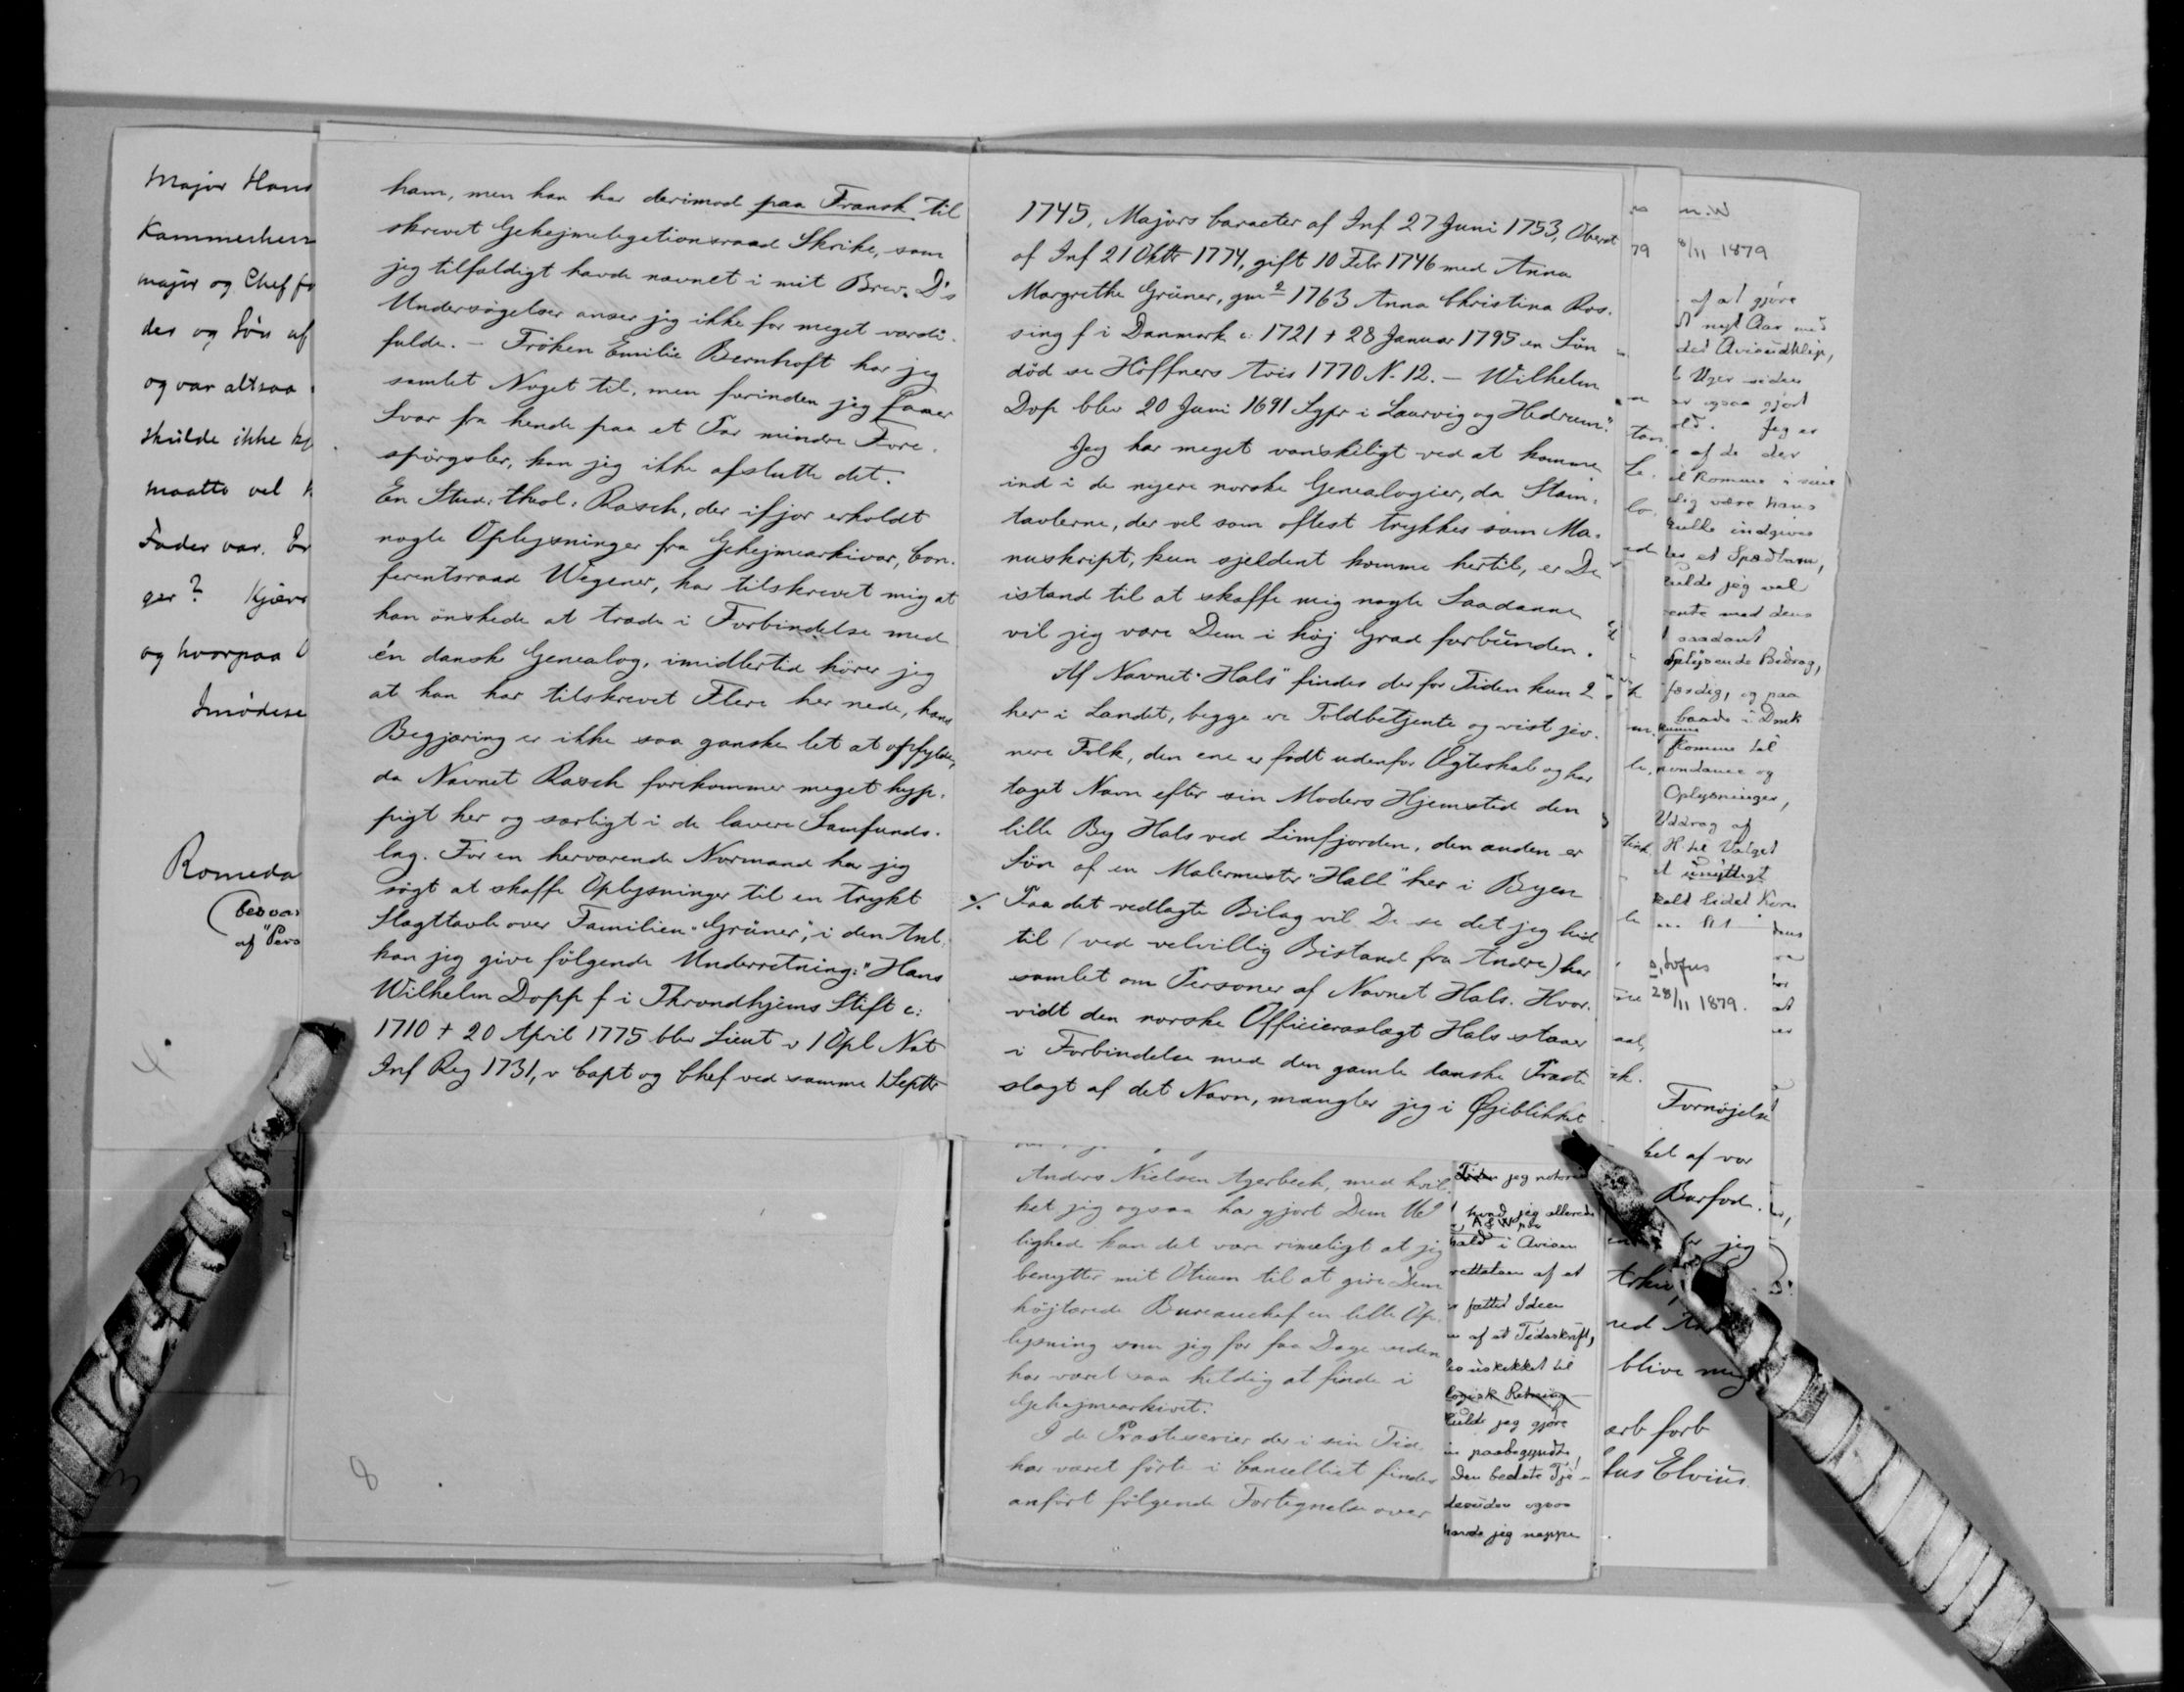 Major Hans
Kammerherr
major og Chef fo
der og Søn af
og var altsaa
skulde ikke
maatte vel
Fader var. Er
ger? Kjære
og hvorpaa
Imødese
Romeda
af "Pers
4.
ham, men han har derimod paa Fransk til
skrevet Gehejmelegationsraad Skrike, som
jeg tilfældigt havde nævnet i mit Brev. D's
Undersøgelser anser jeg ikke for meget værdi-
fulde. – Frøken Emilie Bernhoft har jeg
samlet Noget til, men forinden jeg faaer
Svar fra hende paa et Par mindre Fore-
spørgsler, kan jeg ikke afslutte det.
En Stud: theol: Rasch, der ifjor erholdt
nogle Oplysninger fra Gehejmearkivar, Con-
ferentsraad Wegener, har tilskrevet mig at
han ønskede at træde i Forbindelse med
én dansk Genealog, imidlertid hører jeg
at han har tilskrevet Flere her nede, hans
Begjæring er ikke saa ganske let at opfylde,
da Navnet Rasch forekommer meget hyp-
pigt her og særligt i de lavere Samfunds-
lag. For en herværende Normand har jeg
søgt at skaffe Oplysninger til en trykt
Slægttavle over Familien "Grüner", i den Anl:
kan jeg give følgende Underretning: "Hans
Wilhelm Dopp f i Throndhjems Stift c:
1710 + 20 April 1775 blev Lieut v 1 Opl Nat
Inf Reg 1731, v Capt og Chef ved samme 1 Septbr
1745, Majors caracter af Inf 27 Juni 1753, Oberst
af Inf 21 Oktbr 1774, gift 10 Febr 1746 med Anna
Margrethe Grüner, gm 2 1763 Anna Christina Ros-
sing f i Danmark c: 1721 + 28 Januar 1795 en Søn
død se Höffners Avis 1770 N. 12. – Wilhelm
Dop blev 20 Juni 1691 Sgpr i Laurvig og Hedrum".
Jeg har meget vanskeligt ved at komme
ind i de nyere norske Genealogier, da Stam-
tavlerne, der vel som oftest trykkes som Ma-
nuskript, kun sjeldent komme hertil, er De
istand til at skaffe mig nogle Saadanne
vil jeg være Dem i høj Grad forbunden.
Af Navnet "Hals" findes der for Tiden kun 2
her i Landet, begge ere Toldbetjente og vist jev-
nere Folk, den ene er født udenfor Ægteskab og har
taget Navn efter sin Moders Hjemsted den
lille By Hals ved Limfjorden, den anden er
Søn af en Malermester "Hall" her i Byen
./. Paa det vedlagte Bilag vil De se det jeg hid
til (ved velvillig Bistand fra Andre) har
samlet om Personer af Navnet Hals. Hvor-
vidt den norske Officiersslægt Hals staaer
i Forbindelse med den gamle danske Præste
slægt af det Navn, mangler jeg i Øjeblikket
8
Anders Nielsen Agerbech, med hvil-
ket jeg ogsaa har gjort Dem Ulei
lighed kan det være rimeligt at jeg
benytter mit Otium til at give Dem
højtærede Bureauchef en lille Op-
lysning som jeg for faa Dage siden
har været saa heldig at finde i
Gehejmearkivet.
I de Protesserier der i sin Tid
har været førte i Cancelliet findes
anført følgende Fortegnelse over
Tiden jeg notere
hvad jeg allerede
rettelsen af et
fattet Ideen
af et Tidsskrift,
logisk Retning
kulde jeg gjøre
paabegyndte
Den bedste Tje-
desuden ogsaa
havde jeg neppe
79
8/11 1879
af at gjøre
nyt Aar med
det Avisudklip,
Uger siden
ogsaa gjort
Jeg er
af de der
være hans
kulde indgives
et Spædbarn,
kulde jeg vel
ente med dens
saadant
Oplysende Bidrag,
færdig, og paa
baade i Dmk
komme til
pondance og
Oplysninger,
Uddrag af
H. til Valget
unyttigt
28/11 1879.
Fornøjelse
ket af vor
Barfod.
jeg
blive mig
arb forb
fus Elvius